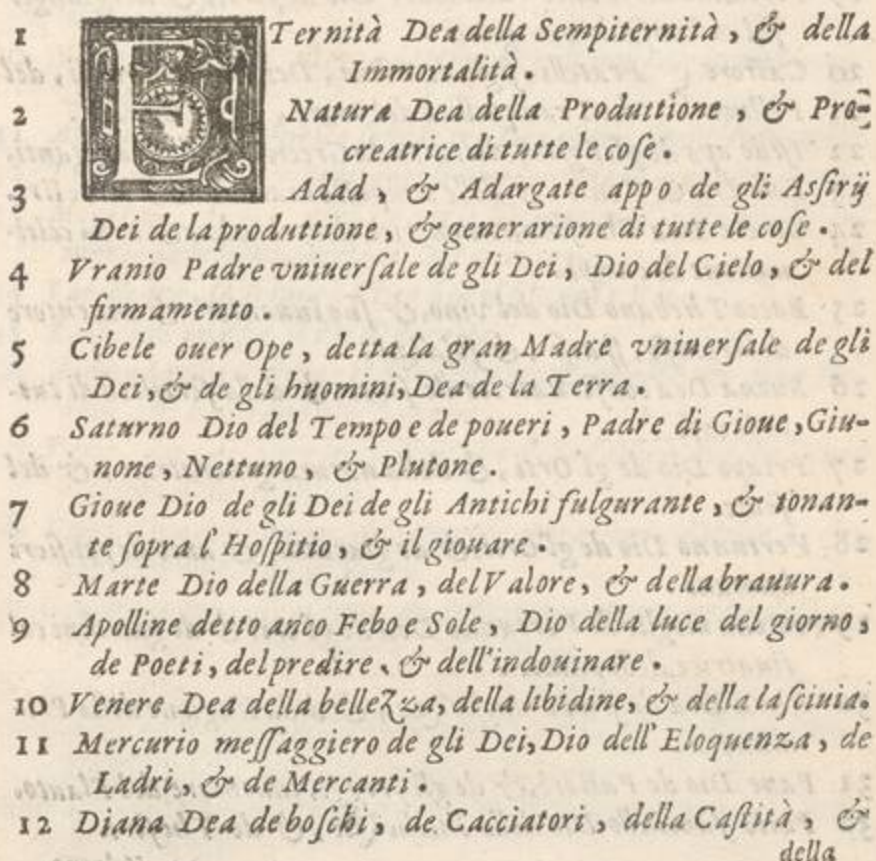 1 ETernità Dea della Sempiternità, & della
Immortalità.
2 Natura Dea della Produttione, & Pro-
creatrice di tutte le coſe.
3 Adad, & Adargate appo de gli Aſſirij
Dei de la produttione, & generarione di tutte le coſe.
4 Vranio Padre vniuerſale de gli Dei, Dio del Cielo, & del
firmamento.
5 Cibele ouer Ope, detta la gran Madre vniuerſale de gli
Dei, & de gli huomini, Dea de la Terra.
6 Saturno Dio del Tempo e de poueri, Padre di Gioue, Giu-
none, Nettuno, & Plutone.
7 Gioue Dio de gli Dei de gli Antichi fulgurante, & tonan-
te ſopra l Hoſpitio, & il giouare.
8 Marte Dio della Guerra, del Valore, & della brauura.
9 Apolline detto anco Febo e Sole, Dio della luce del giorno,
de Poeti, del predire, & dell'indouinare.
10 Venere Dea della bellezza, della libidine, & della laſciuia.
11 Mercurio meſſaggiero de gli Dei, Dio dell' Eloquenza, de
Ladri, & de Mercanti.
12 Diana Dea de boſchi, de Cacciatori, della Caſtità, &
della